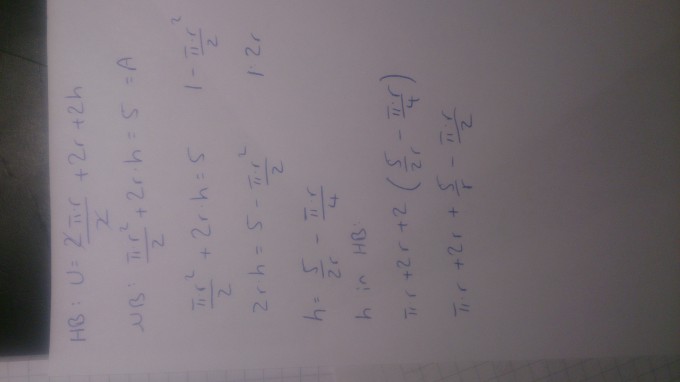 HB: U = 2π·r/2 + 2r + 2h
NB: π·r²/2 + 2r·h = 5 = A
π·r²/2 + 2rh = 5 | - π·r²/2
2r·h = 5 - π·r²/2 | : 2r
h = 5/2r - π·r/4
h in HB:
π·r + 2r + 2 (5/2r - π·r/4)
π·r + 2r + 5/r - π·r/2